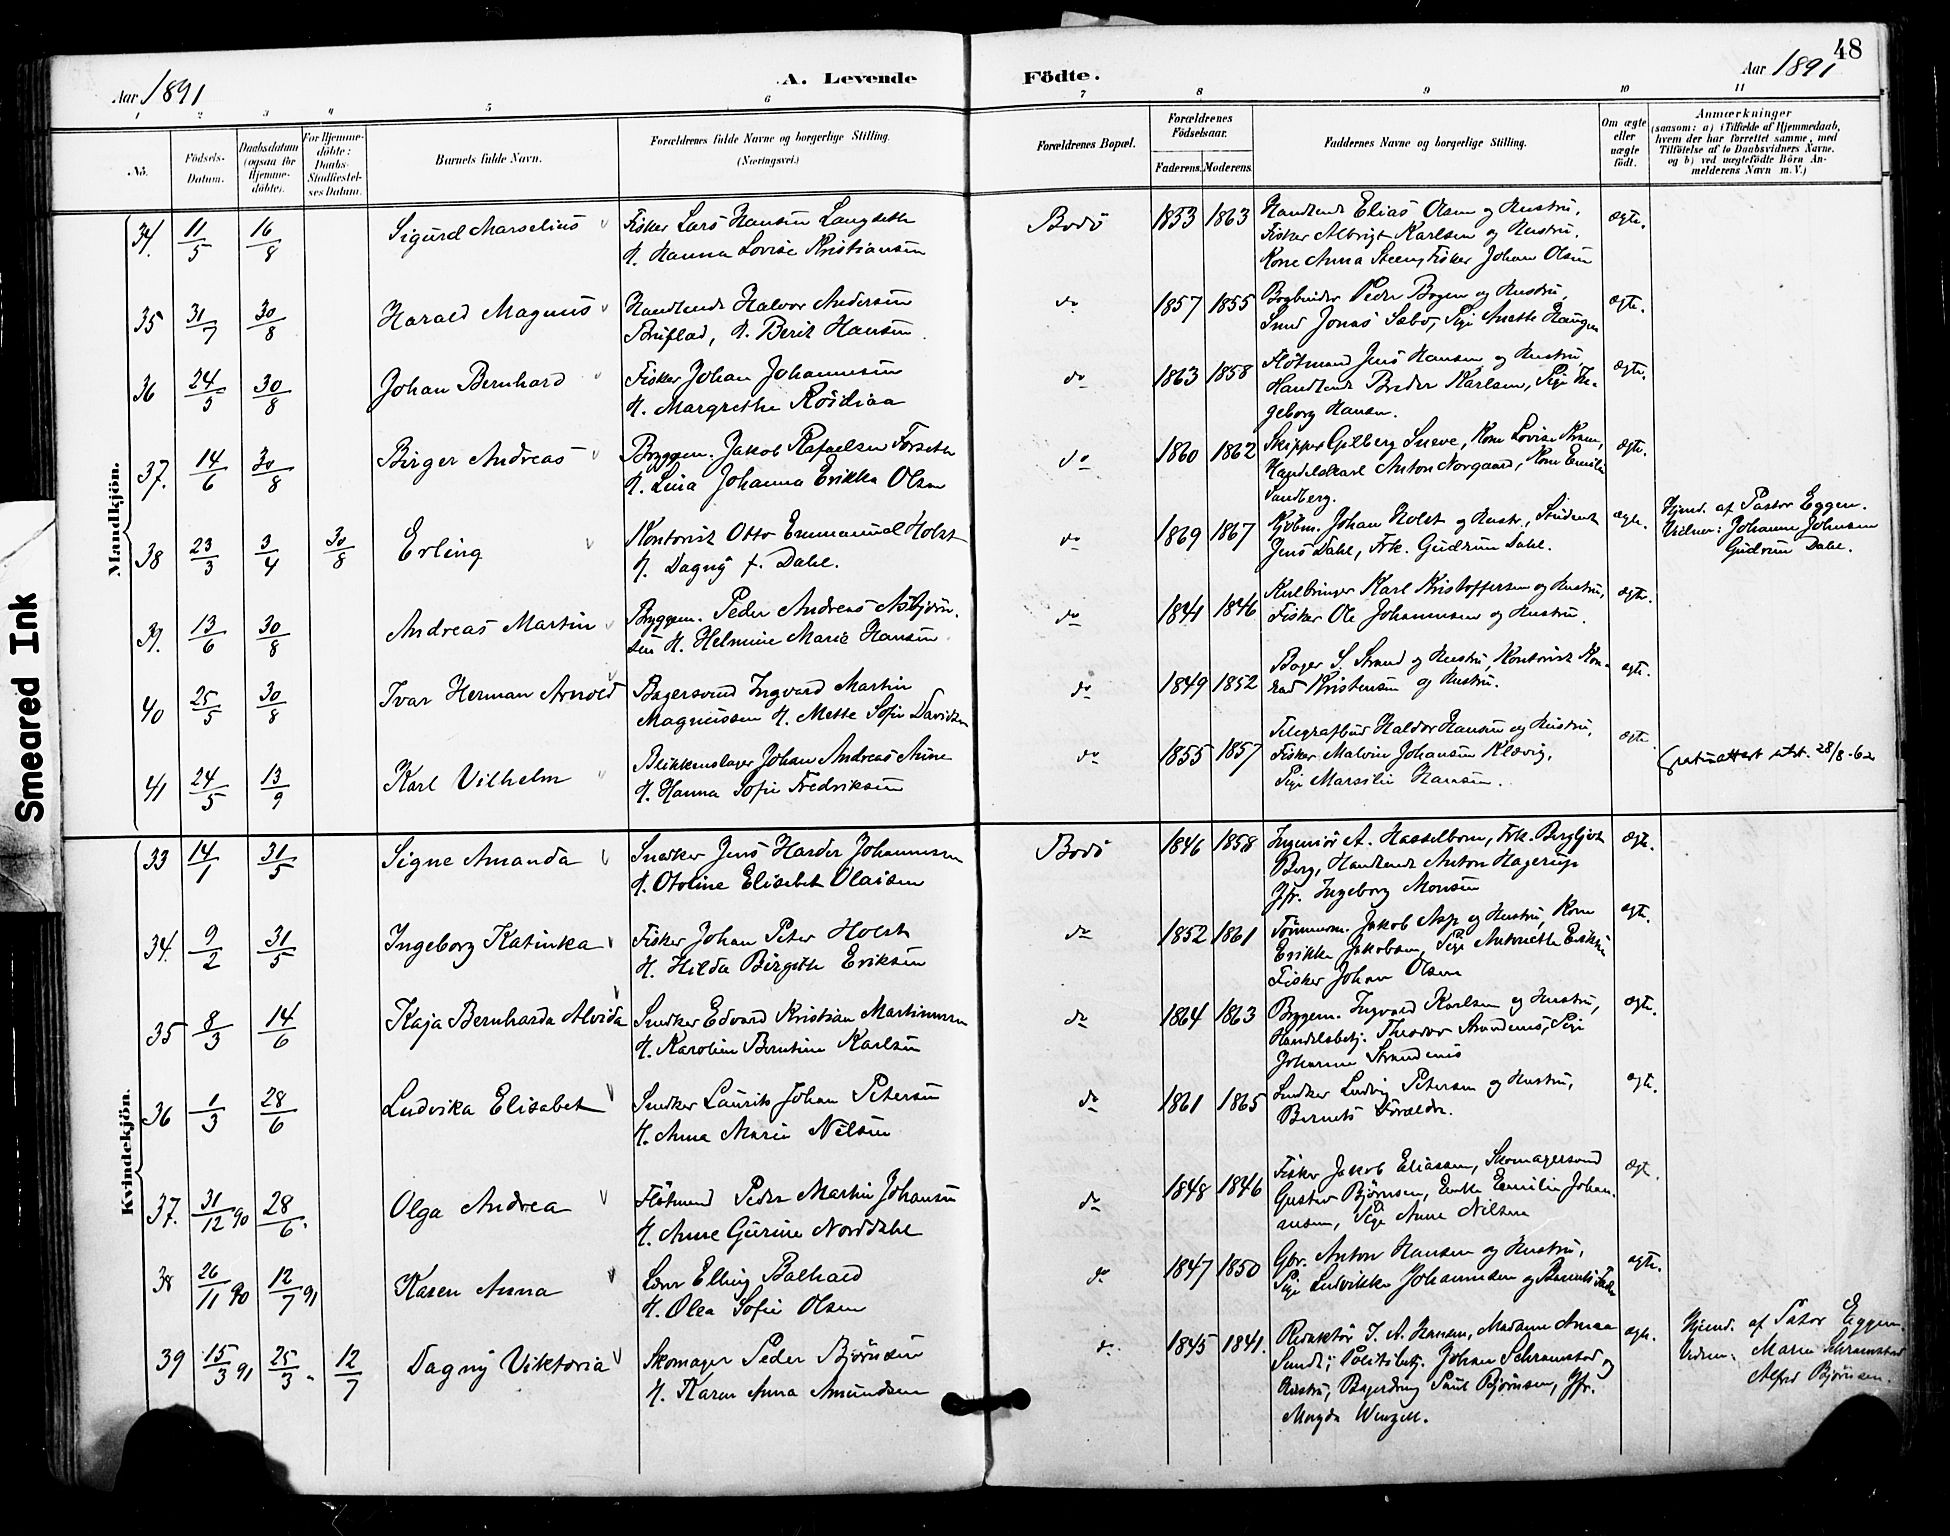 48
Aar 1891
A. Levende Födte.
Aar 1891
1 2 3 4 5 6 7 8 9 10 11
No.
Födsels-Datum.
Daabsdatum (ogsaa for Hjemme-döbte).
For Hjemme-döbte: Daabs-Stadfæstel-ses Datum.
Barnets fulde Navn.
Forældrenes fulde Navne og borgerlige Stilling.
(Næringsvei.)
Forældrenes Bopæl.
Forældrenes Födselsaar.
Faderens. Moderens.
Faddernes Navne og borgerlige Stilling.
Om ægte eller uægte födt.
Anmærkninger
(saasom: a) i Tilfælde af Hjemmedaab,
hvem der har forrettet samme, med
Tilföielse af to Daabsvidners Navne.
og b) ved uægtefödte Börn An-
melderens Navn m. V.)
Mandkjön.
34. 11/5 16/8 Sigurd Marselius Fisker Lars Hansen Langseth
H. Hanna Lovise Kristiansen
Bodö 1853 1863 Handlende Elias Olsen og Hustru,
Fisker Albrigt Karlsen og Hustru.
Kone Anna Steen, Fisker Johan Olsen
ægte.
35 31/7 30/8 Harald Magnus Handlende Halvor Andersen
H. Berit Hansen
do 1857 1855 Bogbinder Peder Bogen og Hustru,
Smed Jonas Sæbø, Pige Anette Haugen
ægte.
36 24/5 30/8 Johan Bernhard Fisker Johan Johannesen
H. Margrethe
do 1863 1858 Flötmand Jens Hansen og Hustru,
Handlende Peder Karlsen, Pige In-
geborg Hansen.
ægte.
37. 14/6 30/8 Birger Andreas Bryggem. Jakob Rafaelsen Forseth
H. Lina Johanna Erikka Olsen
do 1860 1862 Skipper Gilberg Sneve, Kone Lovise
Handelskarl Anton Norgaard, Kone Emilie
Sandberg.
ægte.
38 23/3 3/4 30/8 Erling Kontorist Otto Emmanuel Holst
H. Dagny f. Dahl.
do 1869 1867 Kjöbm. Johan Holst og Hustr., Student
Jens Dahl, Frk. Gudrun Dahl.
ægte.
Hjemd. af Pastor Eggen.
Vidner: Johanne Johnsen
Gudrun Dahl.
39. 13/6 30/8 Andreas Martin Bryggem. Peder Andreas Asbjörn-
sen H. Helmine Marie Hansen
do 1841 1846 Karl Kristoffersen og Hustru,
Fisker Ole Johannesen og Hustru.
ægte.
40 25/5 30/8 Ivar Herman Arnold Bagersvend Ingvard Martin
Magnussen H. Mette Sofie Davidsen
do 1849 1852 Bager S. Strand og Hustru, Kontorist Kon-
rad Kristensen og Hustru.
ægte.
41 24/5 13/9 Karl Vilhelm Blikkenslager Johan Andreas Aune
H. Hanna Sofie Fredriksen
do 1855 1857 Telegrafbud Haldor Hansen og Hustru,
Fisker Malvin Johansen Klævig,
Pige Marsilie Hansen.
ægte.
utst. 28/8-62
Kvindekjön.
33 14/1 31/5 Signe Amanda Snedker Jens Harder Johannessen
H. Otoline Elisabet Olaisen
Bodö 1846 1858 Ingeniör A. Hasselbom, Frk. Bergljot
Berg, Handlende Anton Hagerup
Jfr. Ingeborg Monsen
ægte.
34. 9/2 31/5 Ingeborg Katinka Fisker Johan Peter Holst
H. Hilda Birgitte Eriksen
do 1852 1861 Tömmerm. Jakob Asp og Hustru, Kone
Erikka Jakobsen, Pige Antonette Eriksen
Fisker Johan Olsen
ægte.
35 8/3 14/6 Kaja Bernharda Alvida Snedker Edvard Kristian Martinussen
H. Karoline Berntine Karlsen
do 1864 1863 Bryggem. Ingvard Karlsen og Hustru,
Handelsbetj. Theodor Strandenæs, Pige
Johanne Strandenæs
ægte.
36 1/3 28/6 Ludvika Elisabet Snedker Laurits Johan Petersen
H. Anna Marie Nilsen
do 1861 1865 Snedker Ludvig Petersen og Hustru,
Barnets Forældre.
ægte.
37. 31/12 90 28/6. Olga Andrea Flötmand Peder Martin Johansen
H. Anne Gurine Norddahl
do 1848 1846 Fisker Jakob Eliassen, Skomagersvend
Gustav Björnsen, Enke Emilie Johan-
nesen, Pige Anne Nilsen
ægte.
38 26/11 90 12/7 91 Karen Anna Elling Balhald
H. Olea Sofie Olsen
do 1847 1850 Gbr. Anton Hansen og Hustru,
Pige Ludvikke Johannesen og Barnets Fader
ægte.
39 15/3 91 25/3 " 12/7 Dagny Viktoria Skomager Peder Björnsen
H. Karen Anna Amundsen
do. 1845 1841. Redaktör I. A. Hansen, Madame Anna
Sund, Politibetj. Johan Schramstad og
Hustru, Bagerdreng Paul Björnsen, Jfr.
Magda Wenzell.
ægte.
Hjemd. af Pastor Eggen.
Vidner: Marie Schramstad
Alfred Björnsen.
Smeared Ink